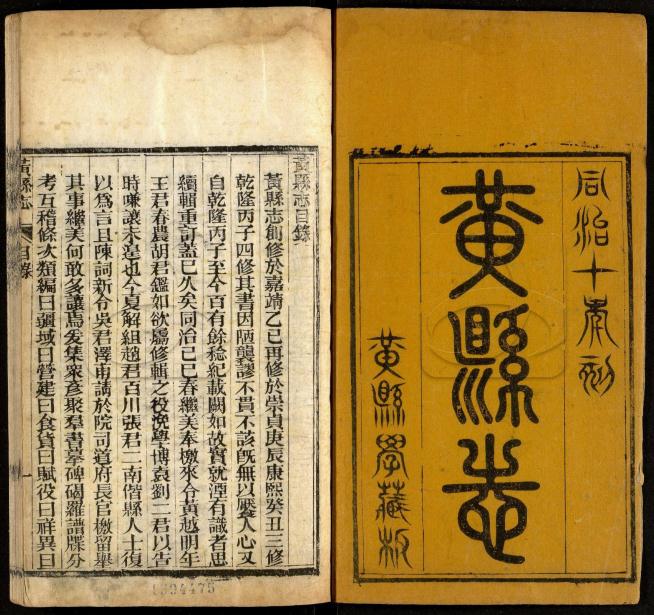 同治十年刻
黃縣志
黃縣學藏板
黃縣志目錄
黃縣志創修於嘉靖乙巳再修於崇貞庚辰康熙癸丑三修
乾隆丙子四修其書因陋襲謬不貫不該旣無以饜人心又
自乾隆丙子至今百有餘稔紀載闕如故實就湮有識者思
續輯重訂蓋已久矣同治己巳春繼美奉檄來令黃越明年
王君春農胡君鑑如欲屬修輯之役浼學博袁劉二君以告
時嗛讓未遑也今夏解組趙君百川張君二南偕縣人士復
以為言且陳詞新令吳君澤甫請於院司道府長官檄留舉
其事繼美何敢多讓焉爰集眾彥聚羣書摹碑碣羅譜牒分
考互稽條次類編曰疆域曰營建曰食貨曰賦役曰祥異曰
黃縣志
目錄
一